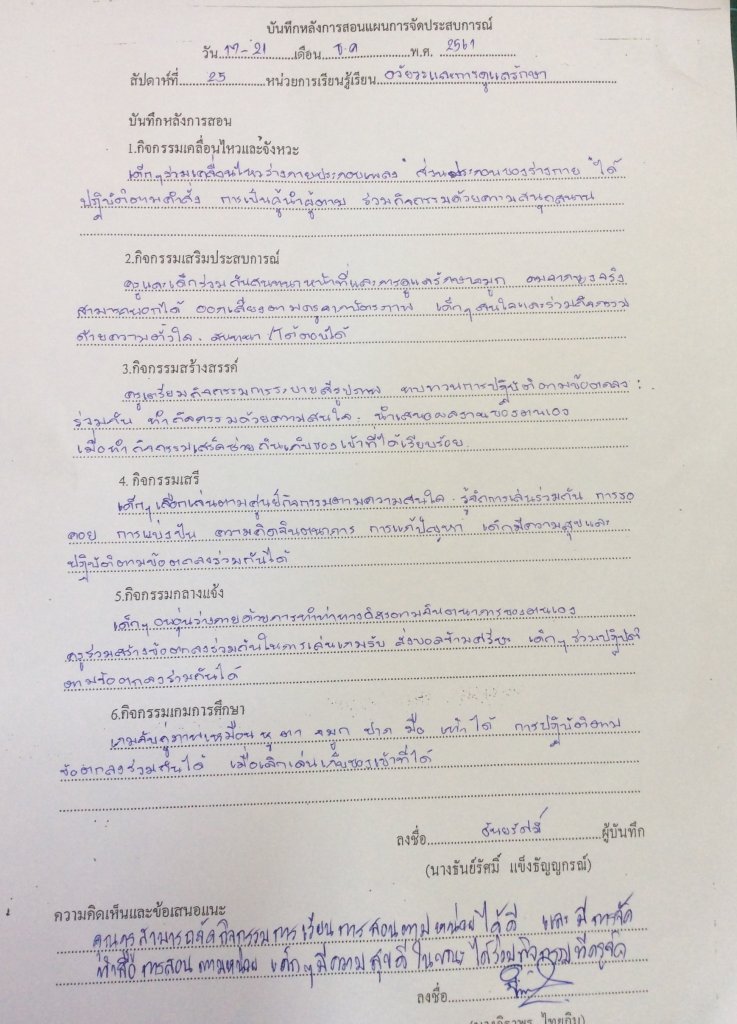 บันทึกหลังการสอนแผนการจัดประสบการณ์
วัน 17-21 เดือน ธ.ค พ.ศ. 2561
สัปดาห์ที่ 25 หน่วยการเรียนรู้เรียน อวัยวะและการดูแลรักษา
บันทึกหลังการสอน
1.กิจกรรมเคลื่อนไหวและจังหวะ
เด็กๆร่วมเคลื่อนไหวร่างกายประกอบเพลง "ส่วนประกอบของร่างกาย" ได้
ปฏิบัติตามคำสั่ง การเป็นผู้นำผู้ตาม ร่วมกิจกรรมด้วยความสนุกสนาน
2.กิจกรรมเสริมประสบการณ์
ครูและเด็กร่วมกันสนทนาหน้าที่และการดูแลรักษาจมูก
สามารถบอกได้ ออกเสียงตามครูจากบัตรภาพ เด็กๆสนใจและร่วมกิจกรรม
ด้วยความตั้งใจ. สนทนา/โต้ตอบได้
3.กิจกรรมสร้างสรรค์
ครูเตรียมกิจกรรมการระบายสีรูปภาพ ทบทวนการปฏิบัติตามข้อตกลง
ร่วมกัน ทำกิจกรรมด้วยความสนใจ. นำเสนอผลงานของตนเอง
เมื่อทำกิจกรรมเสร็จช่วยกันเก็บของเข้าที่ได้เรียบร้อย
4. กิจกรรมเสรี
เด็กๆเลือกเล่นตามศูนย์กิจกรรมตามความสนใจ. รู้จักการเล่นร่วมกัน การรอ
คอย การแบ่งปัน ความคิดจินตนาการ การแก้ปัญหา เด็กมีความสุขและ
ปฏิบัติตามข้อตกลงร่วมกันได้
5.กิจกรรมกลางแจ้ง
เด็กๆอบอุ่นร่างกายด้วยการทำท่าทางอิสระตามจินตนาการของตนเอง
ครูร่วมสร้างข้อตกลงร่วมกันในการเล่นเกมรับ ส่งบอลข้ามศรีษะ เด็กๆร่วมปฏิบัติ
ตามข้อตกลงร่วมกันได้
6.กิจกรรมเกมการศึกษา
เกมจับคู่ภาพเหมือน หู ตา จมูก ปาก มือ เท้า ได้ การปฏิบัติตาม
ข้อตกลงร่วมกันได้ เมื่อเลิกเล่นเก็บของเข้าที่ได้
ลงชื่อ ธันยรัศมิ์ ผู้บันทึก
(นางธันย์รัศมิ์ แข็งธัญญกรณ์)
ความคิดเห็นและข้อเสนอแนะ
คุณครูสามารถจัดกิจกรรมการเรียนการสอนตามหน่วยได้ดี และมีการจัด
ทำสื่อการสอนตามหน่วย เด็กๆมีความสุขดีในขณะได้ร่วมกิจกรรมที่ครูจัด
ลงชื่อ